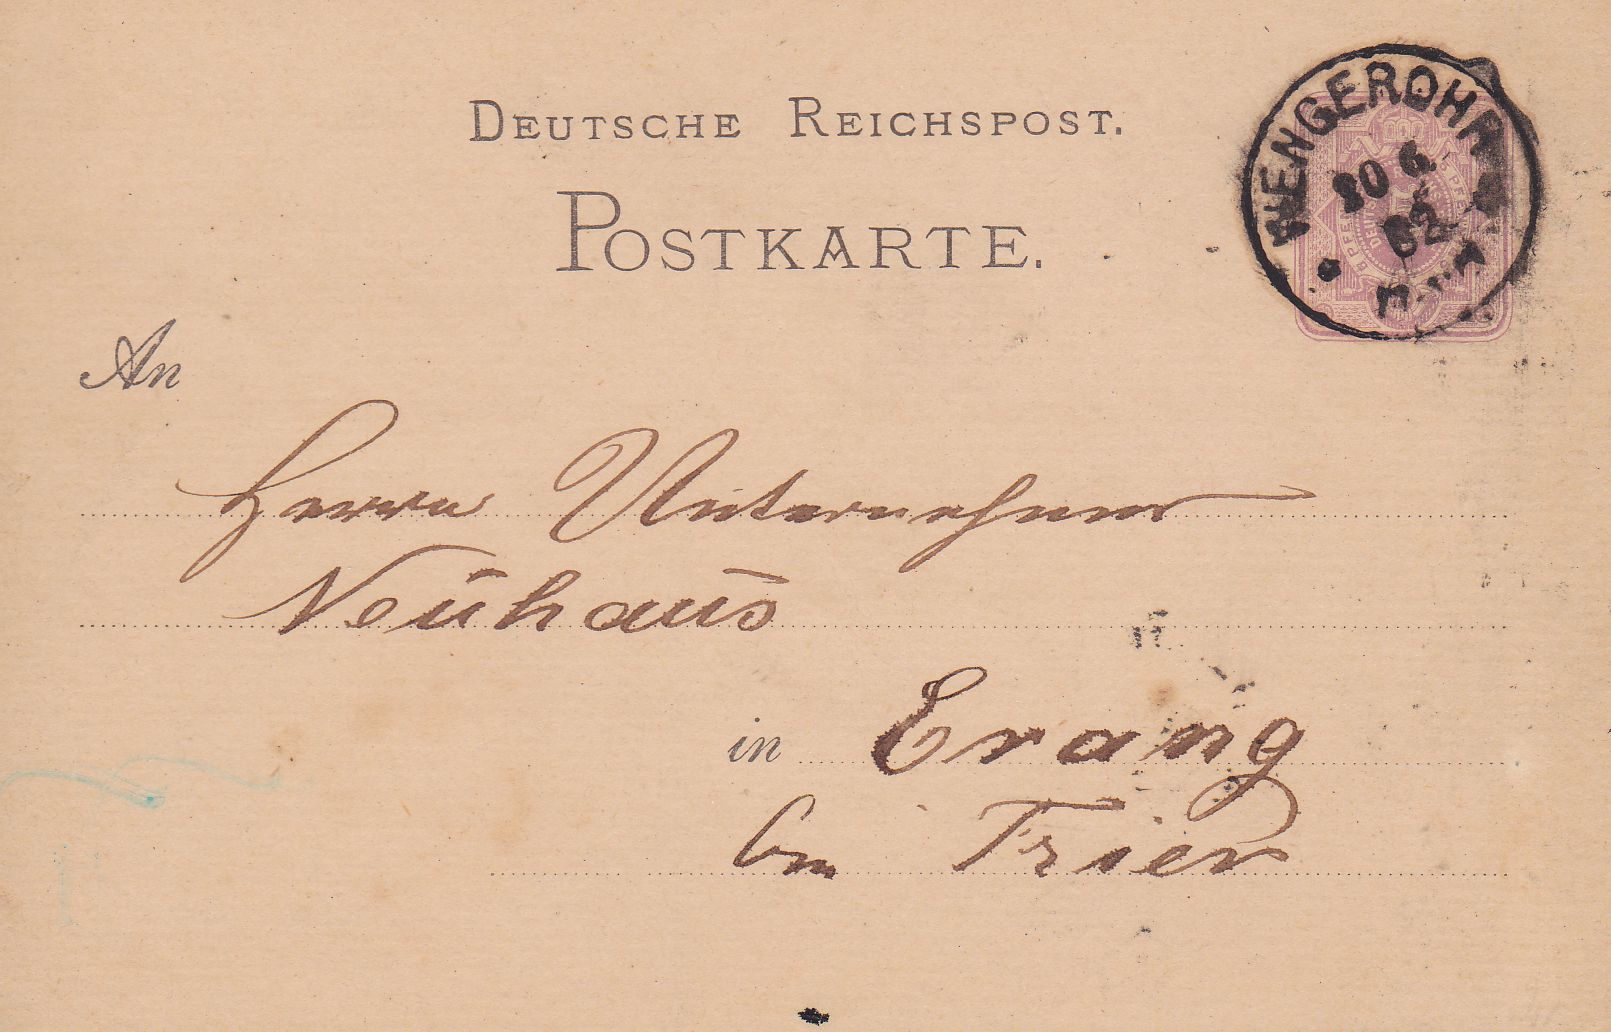 DEUTSCHE REICHSPOST.
POSTKARTE.
WENGEROHR
6
82
5 PFE
An
Herrn Unternehmer
Neuhaus
in Erang
bei Trier